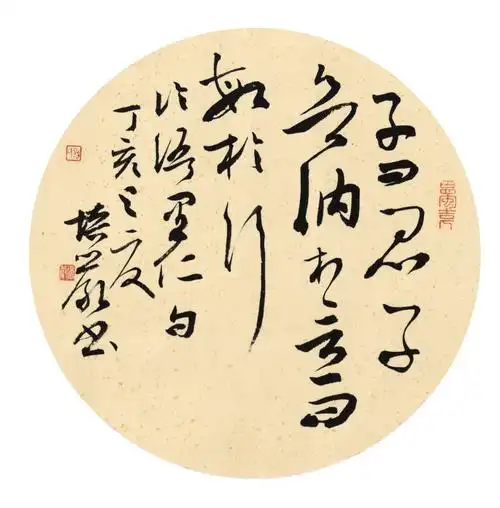 子曰君子
欲訥於言而
敏於行
论语里仁句
丁亥之夏
培嚴书